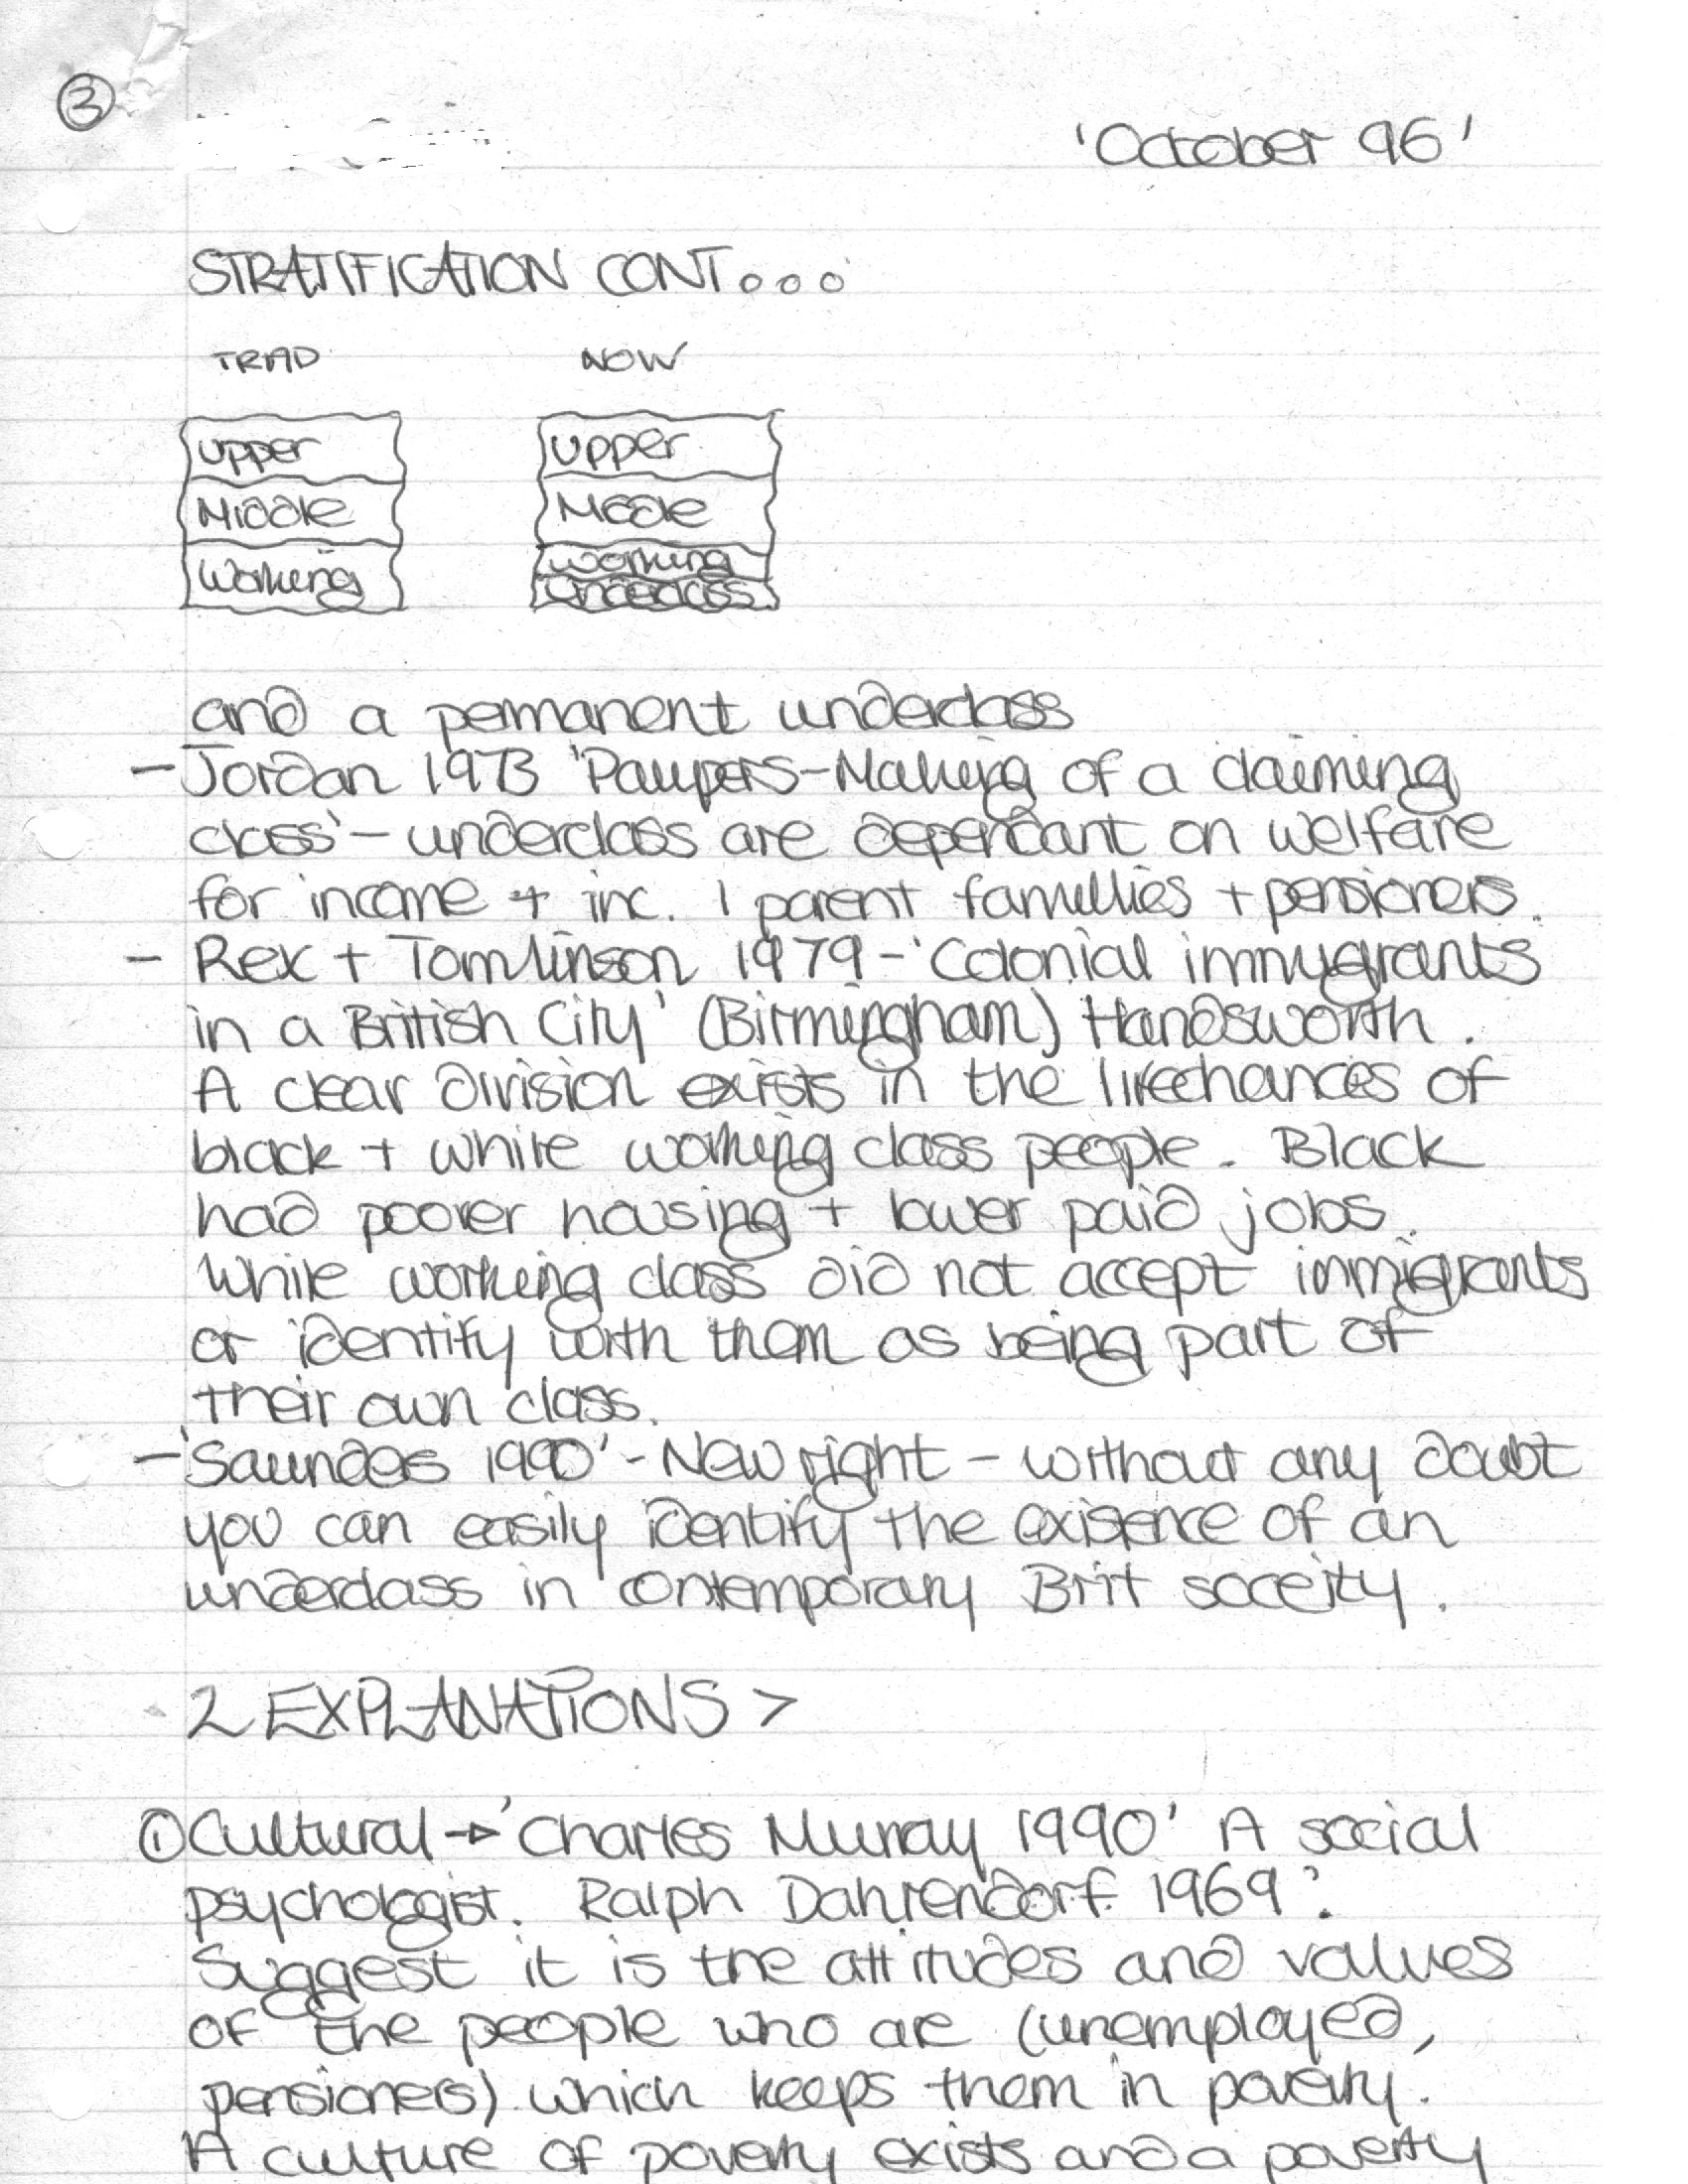 3
'October 96'
STRATIFICATION CONT...
TRAD NOW
Upper Upper
Middle Middle
Working Working
Underclass
and a permanent underclass
- Jordan 1973 'Paupers-Making of a claiming
class' - underclass are dependant on welfare
for income + inc. 1 parent famillies + pensioners.
- Rex + Tomlinson 1979 - 'Colonial immigrants
in a British City' (Birmingham) Handsworth.
A clear division exists in the lifechances of
black + white working class people. Black
had poorer housing + lower paid jobs.
White working class did not accept immigrants
or identify with them as being part of
their own class.
- 'Saunders 1990' - New right - without any doubt
you can easily identify the existence of an
underclass in contemporary Brit soceity.
2 EXPLANATIONS >
① Cultural → 'Charles Murray 1990' A social
psychologist. Ralph Dahrendorf 1969'.
Suggest it is the attitudes and values
of the people who are (unemployed,
pensioners) which keeps them in poverty.
A culture of poverty exists and a poverty